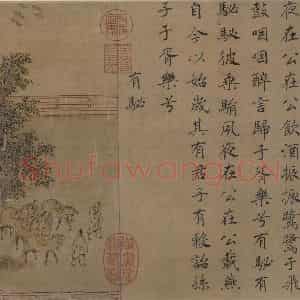 夜在公在公飲酒振振鷺鷺于飛
鼓咽咽醉言歸于胥樂兮有駜有
駜駜彼乘駽夙夜在公在公載燕
自今以始歲其有君子有穀詒孫
子于胥樂兮
有駜
shufawang.CN